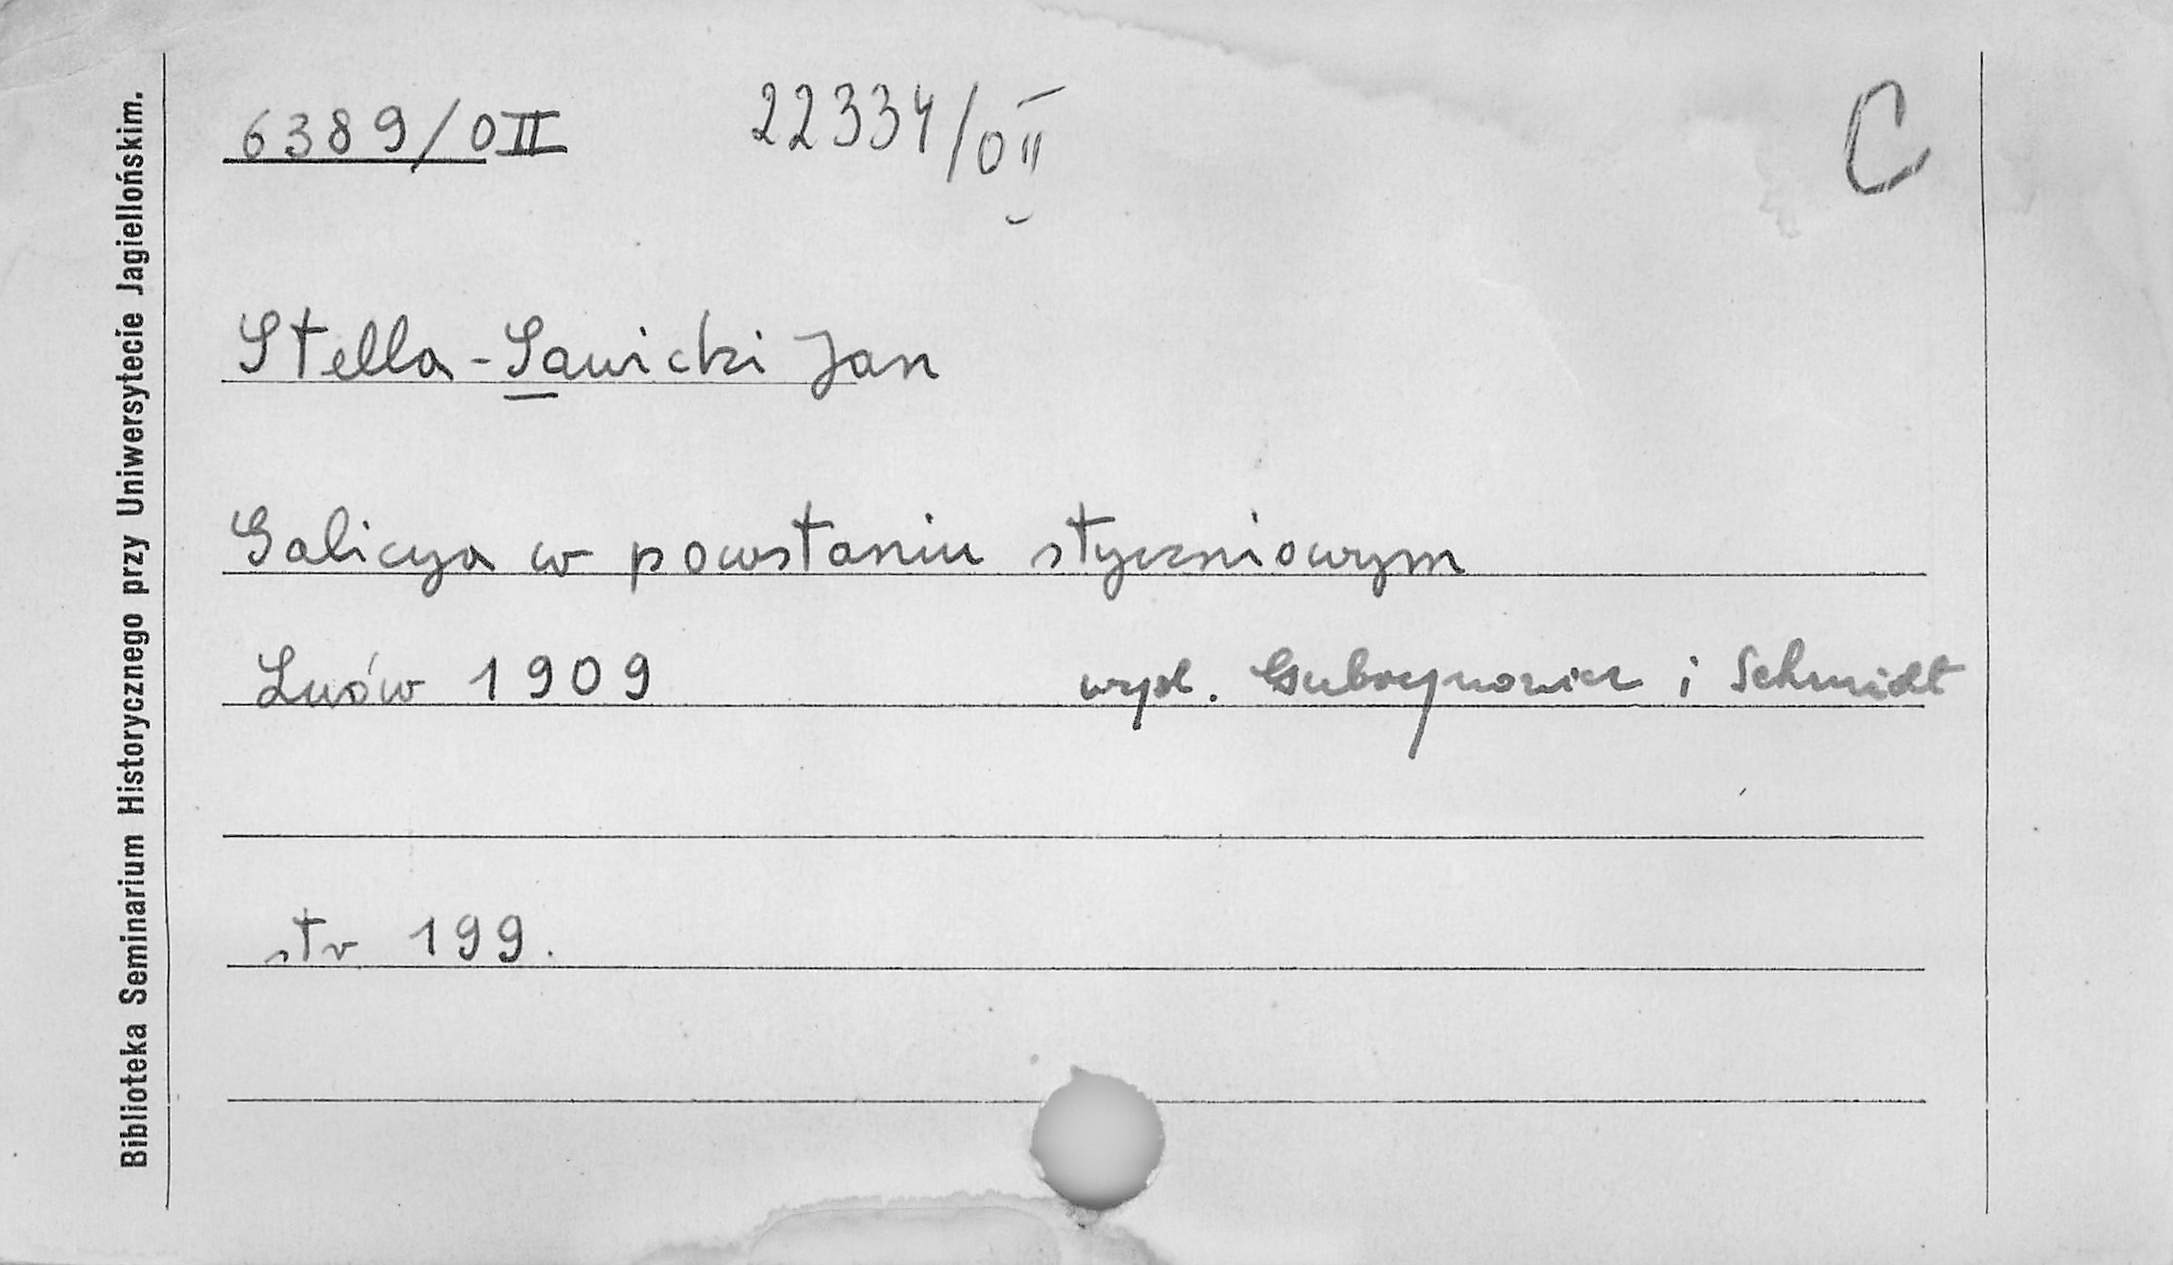 Biblioteka Seminarium Historycznego przy Uniwersytecie Jagiellońskim.
6389/OII 22334/OII C
Stella-Sawicki Jan
Galicya w powstaniu styczniowym
Lwów 1909 wyd. Gubrynowicz i Schmidt
str 199.